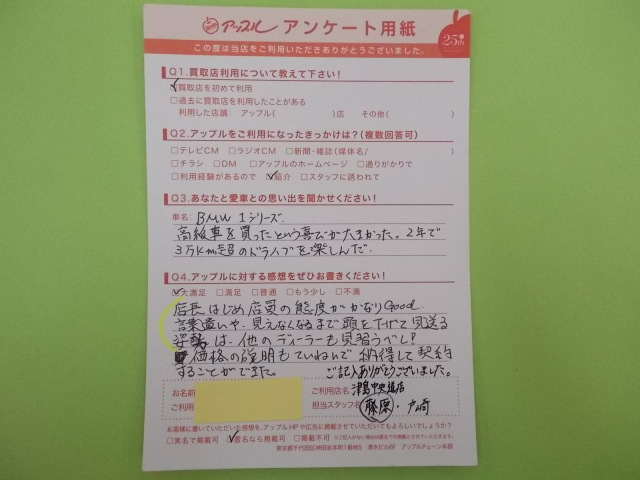 アップル アンケート用紙
25th
この度は当店をご利用いただきありがとうございました。
Q1.買取店利用について教えて下さい!
☑買取店を初めて利用
□過去に買取店を利用したことがある
利用した店舗: アップル( )店 その他( )
Q2.アップルをご利用になったきっかけは?(複数回答可)
□テレビCM □ラジオCM □新聞・雑誌(媒体名/ )
□チラシ □DM □アップルのホームページ □通りがかりで
□利用経験があるので ☑紹介 □スタッフに誘われて
Q3.あなたと愛車との思い出を聞かせください!
車名: BMW 1シリーズ.
高級車を買ったという喜びが大きかった。2年で
3万km超のドライブを楽しんだ.
Q4.アップルに対する感想をぜひお書きください!
☑大満足 □満足 □普通 □もう少し □不満
店長はじめ店員の態度がかなりGood.
言葉遣いや、見えなくなるまで頭を下げて見送る
姿勢は、他のディーラーも見習うべし!
価格の説明もていねいで納得して契約
することができた。
ご記入ありがとうございました。
お名前
ご利用
ご利用店名 津島中央道店
担当スタッフ名 藤原・戸崎
お客様に書いていただいた感想を、アップルHPや広告に掲載させていただいてもよろしいでしょうか?
□実名で掲載可 ☑匿名なら掲載可 □掲載不可 ※ご記入がない場合は匿名での掲載とさせていただきます。
東京都千代田区神田岩本町1番地5 清水ビル6F アップルチェーン本部